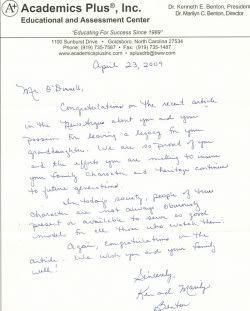 A+ Academics Plus®, Inc.
Educational and Assessment Center
Dr. Kenneth E. Benton, President
Dr. Marilyn C. Benton, Director
"Educating For Success Since 1989"
1100 Sunburst Drive • Goldsboro, North Carolina 27534
Phone: (919) 735-7587 • Fax: (919) 735-1487
www.academicsplusinc.com •
April 23, 2009
Mr. O'Donnell,
Congratulations on the recent article
in the News Argus about you and your
passion for leaving a legacy for your
grandaughters. We are so proud of you
and the efforts you are making to insure
your family character and heritage continue
to future generations.
In today's society, people of true
character are not always obviously
present or available to serve as good
models for all those who watch them.
Again, congratulations on the
article. We wish you and your family
well!
Sincerely,
Ken and Marilyn
Benton